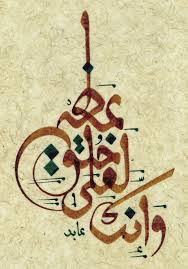 وإنك
لعلى
خلق
عظيم
عابد